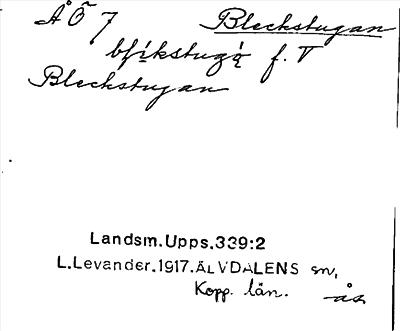 ÅÖ 7 Bleckstugan
f. V
Bleckstugan
Landsm. Upps. 339:2
L. Levander. 1917. ÄLVDALENS sn,
Kopp. län.